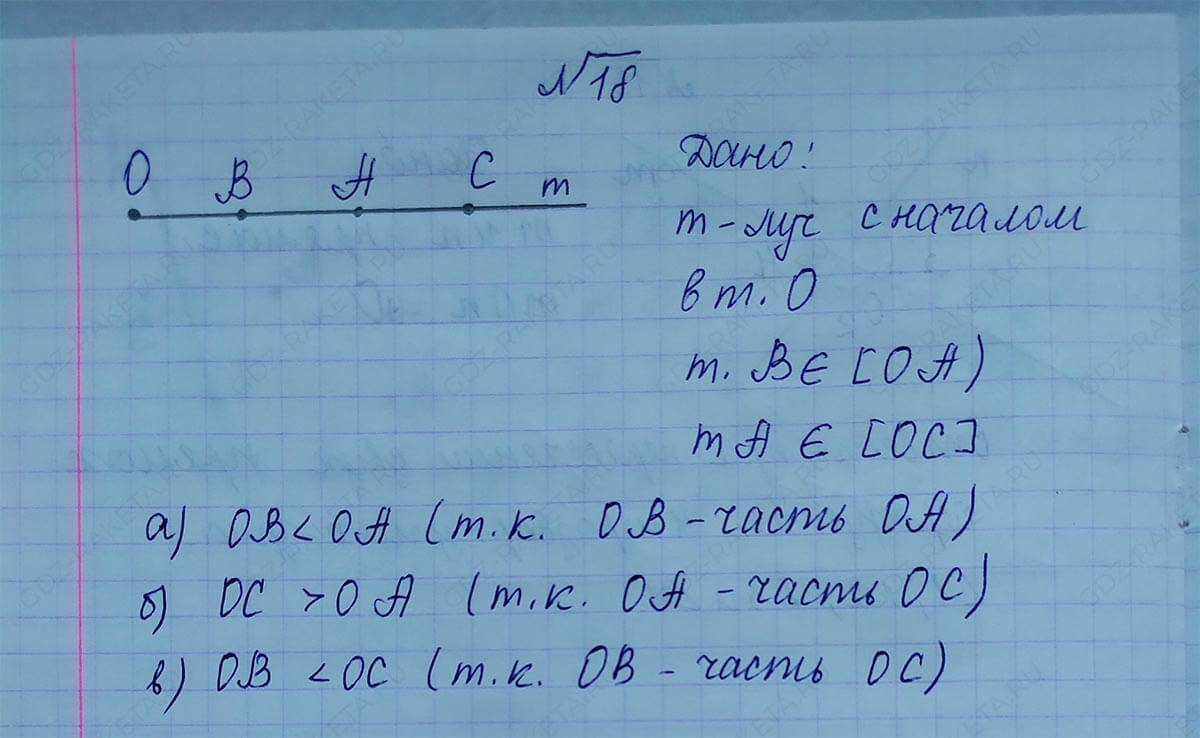 №18
O B A C m
Дано:
m-луч с началом
в т. О
т. B ∈ [OA)
т A ∈ [OC]
а) OB < OA (т.к. OB - часть OA)
б) OC > OA (т.к. OA - часть OC)
в) OB < OC (т.к. OB - часть OC)
GDZ-RAKETA.RU